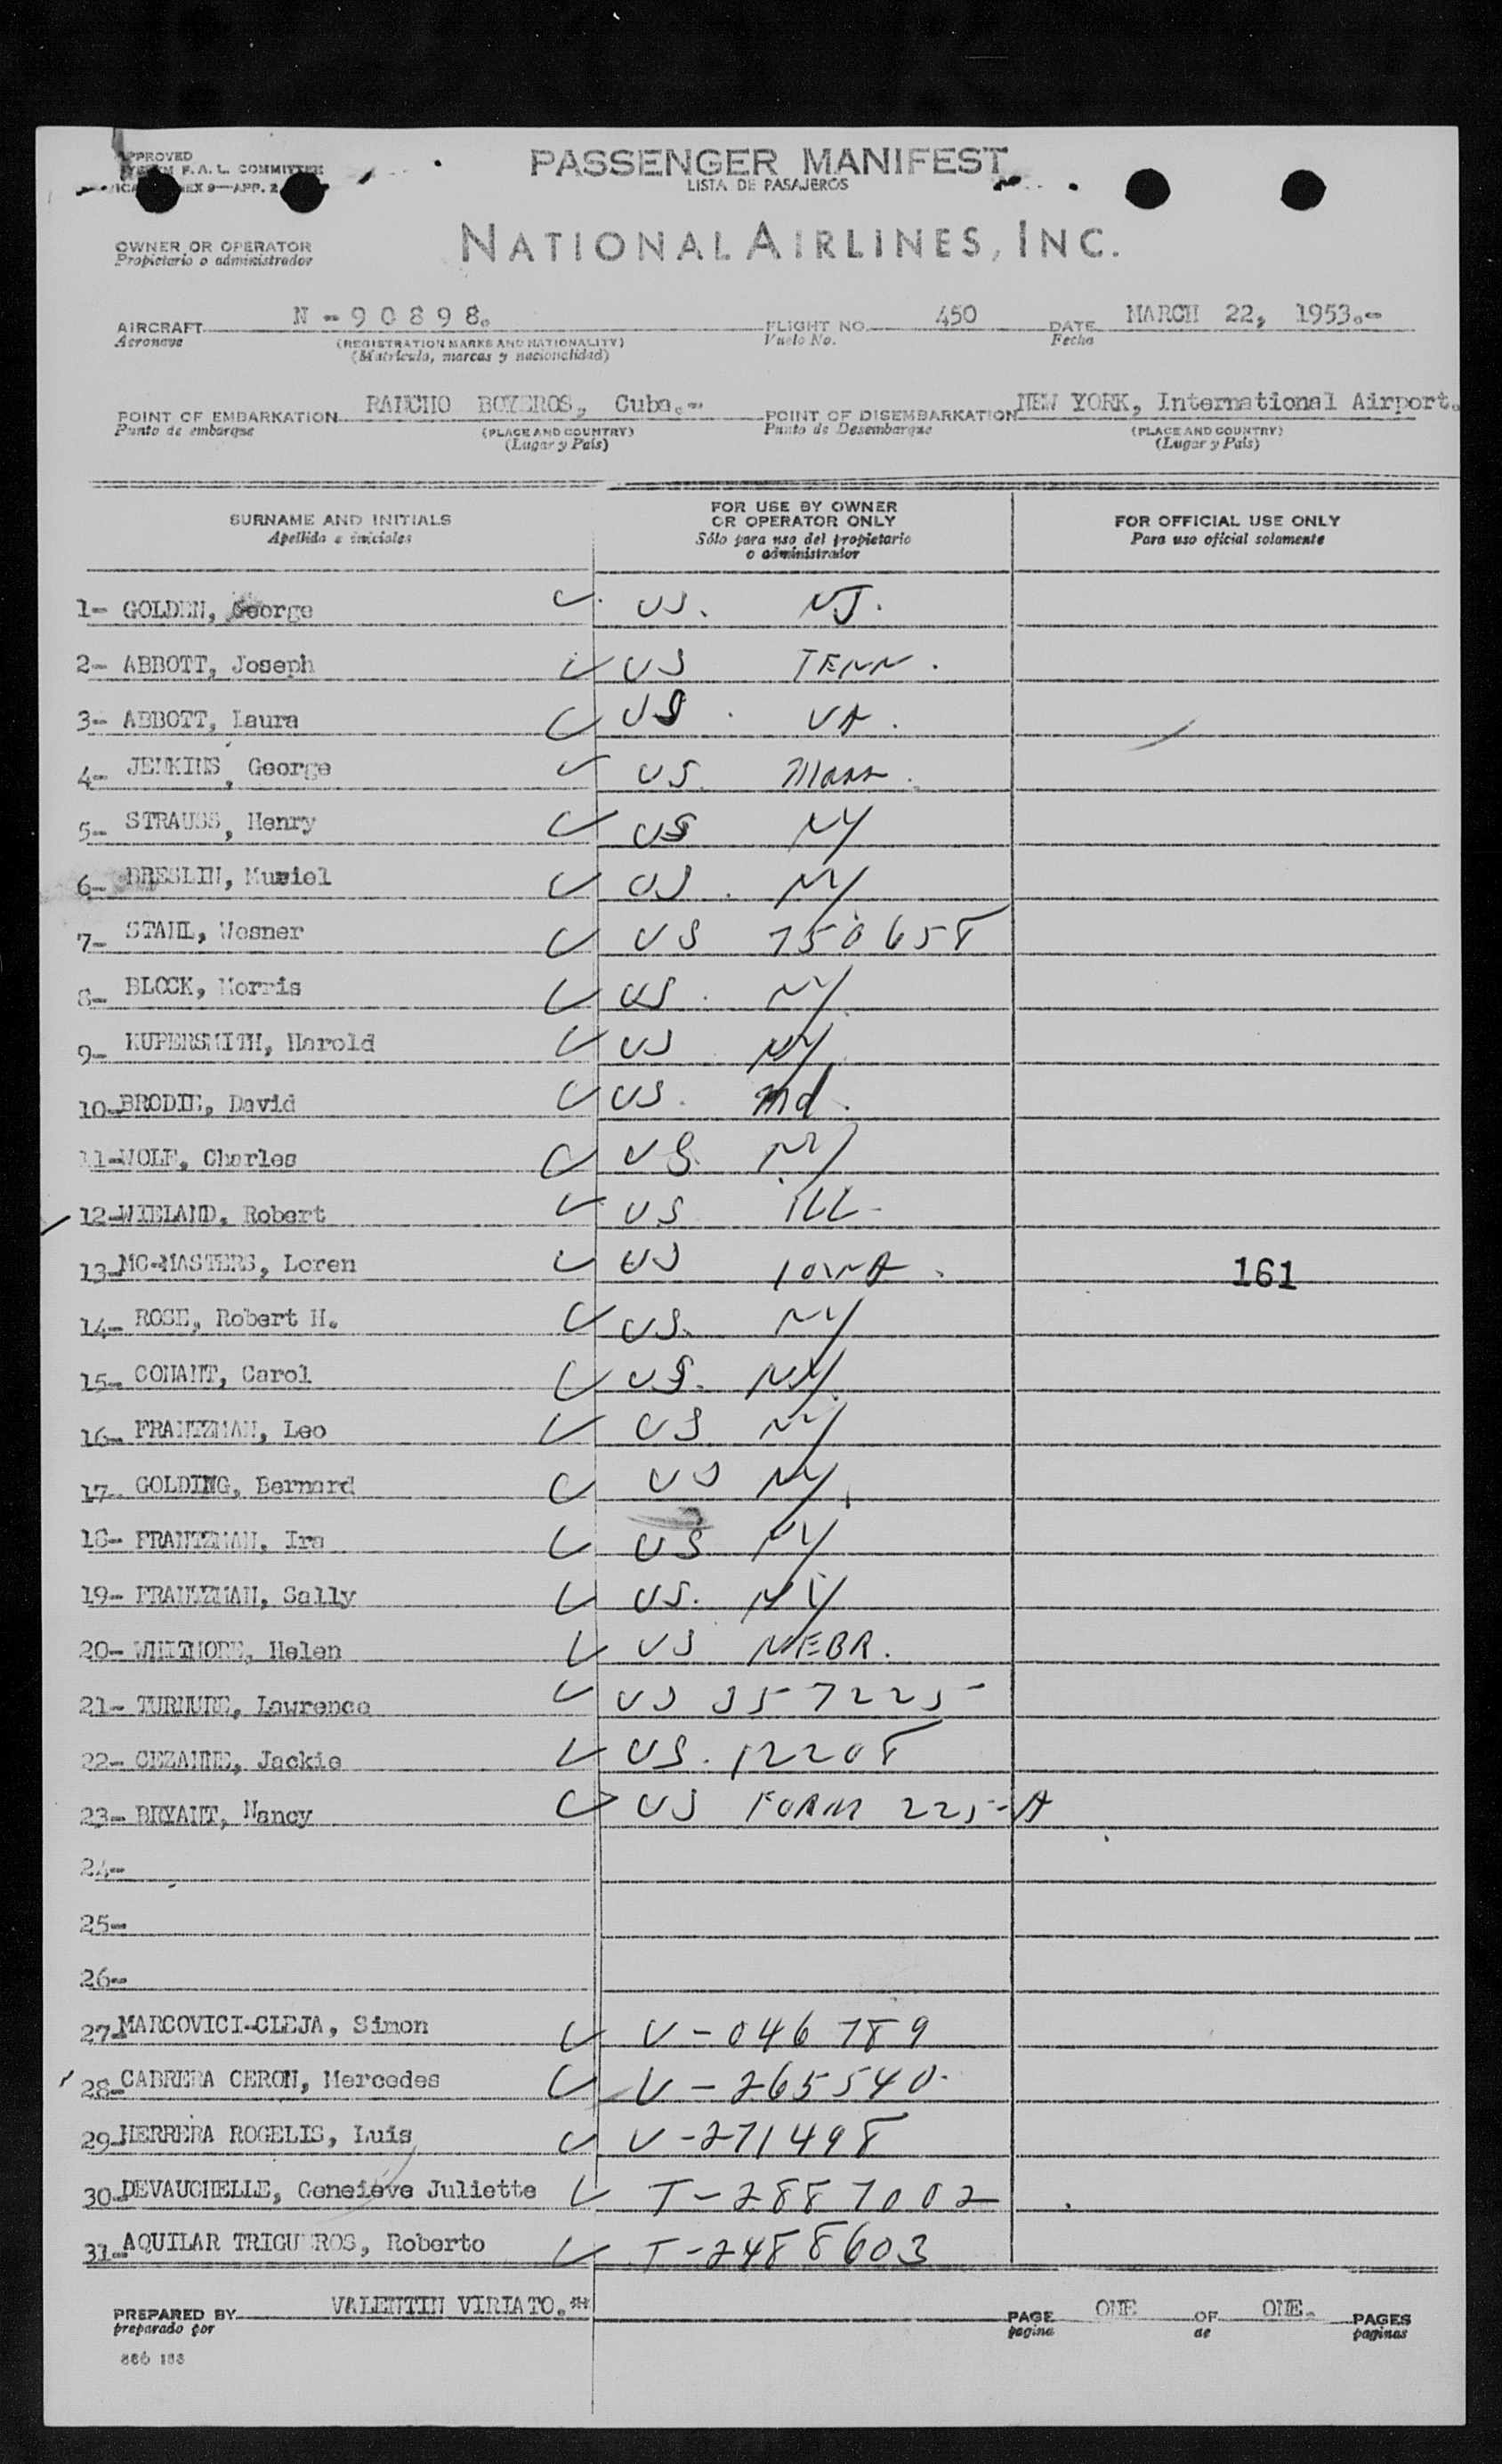 APPROVED
F. A. L. COMMITTEE
EX 9—APP. 2
PASSENGER MANIFEST
LISTA DE PASAJEROS
OWNER OR OPERATOR
Propietario o administrador
NATIONAL AIRLINES, INC.
AIRCRAFT N - 9 0 8 9 8. FLIGHT NO. 450 DATE MARCH 22, 1953.-
Aeronave (REGISTRATION MARKS AND NATIONALITY) Vuelo No. Fecha
(Matrícula, marcas y nacionalidad)
POINT OF EMBARKATION RANCHO BOYEROS, Cuba.- POINT OF DISEMBARKATION NEW YORK, International Airport.
Punto de embarque (PLACE AND COUNTRY) Punto de Desembarque (PLACE AND COUNTRY)
(Lugar y País) (Lugar y País)
SURNAME AND INITIALS
Apellido e iniciales
FOR USE BY OWNER
OR OPERATOR ONLY
Sólo para uso del propietario
o administrador
FOR OFFICIAL USE ONLY
Para uso oficial solamente
1- GOLDEN, George US. NJ.
2- ABBOTT, Joseph US TENN.
3- ABBOTT, Laura US. VA.
4- JENKINS, George US. Mass.
5- STRAUSS, Henry US NY
6- BRESLIN, Muriel US. NY
7- STAHL, Wesner US 750658
8- BLOCK, Morris US. NY
9- KUPERSMITH, Harold US NY
10- BRODIE, David US. Md.
11- WOLF, Charles US. NY
12- WIELAND, Robert US ILL-
13- MC-MASTERS, Loren US IOWA. 161
14- ROSE, Robert H. US. NY
15- CONANT, Carol US. NY.
16- FRANTZMAN, Leo US NY
17- GOLDING, Bernard US NY.
18- FRANTZMAN, Ira US NY
19- FRANTZMAN, Sally US. NY
20- WHITMORE, Helen US NEBR.
21- TURNURE, Lawrence US 357225
22- CEZANNE, Jackie US. 12208
23- BRYANT, Nancy US FORM 225-A
24-
25-
26-
27- MARCOVICI-CLEJA, Simon V-046789
28- CABRERA CERON, Mercedes V-265540.
29- HERRERA ROGELIS, Luis V-271498
30- DEVAUCHELLE, Geneieve Juliette T-2887002
31- AQUILAR TRIGUEROS, Roberto T-2488603
PREPARED BY VALENTIN VIRIATO. PAGE ONE OF ONE. PAGES
preparado por pagina de paginas